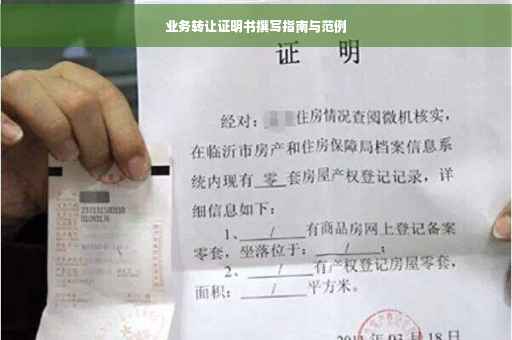 业务转让证明书撰写指南与范例
证 明
经对：住房情况查阅微机核实，
在临沂市房产和住房保障局档案信息系
统内现有 零 套房屋产权登记记录，详
细信息如下：
1、 / 有商品房网上登记备案
零套，坐落位于： / ；
2、 / 有产权登记房屋零套，
面积： / 平方米。
18日